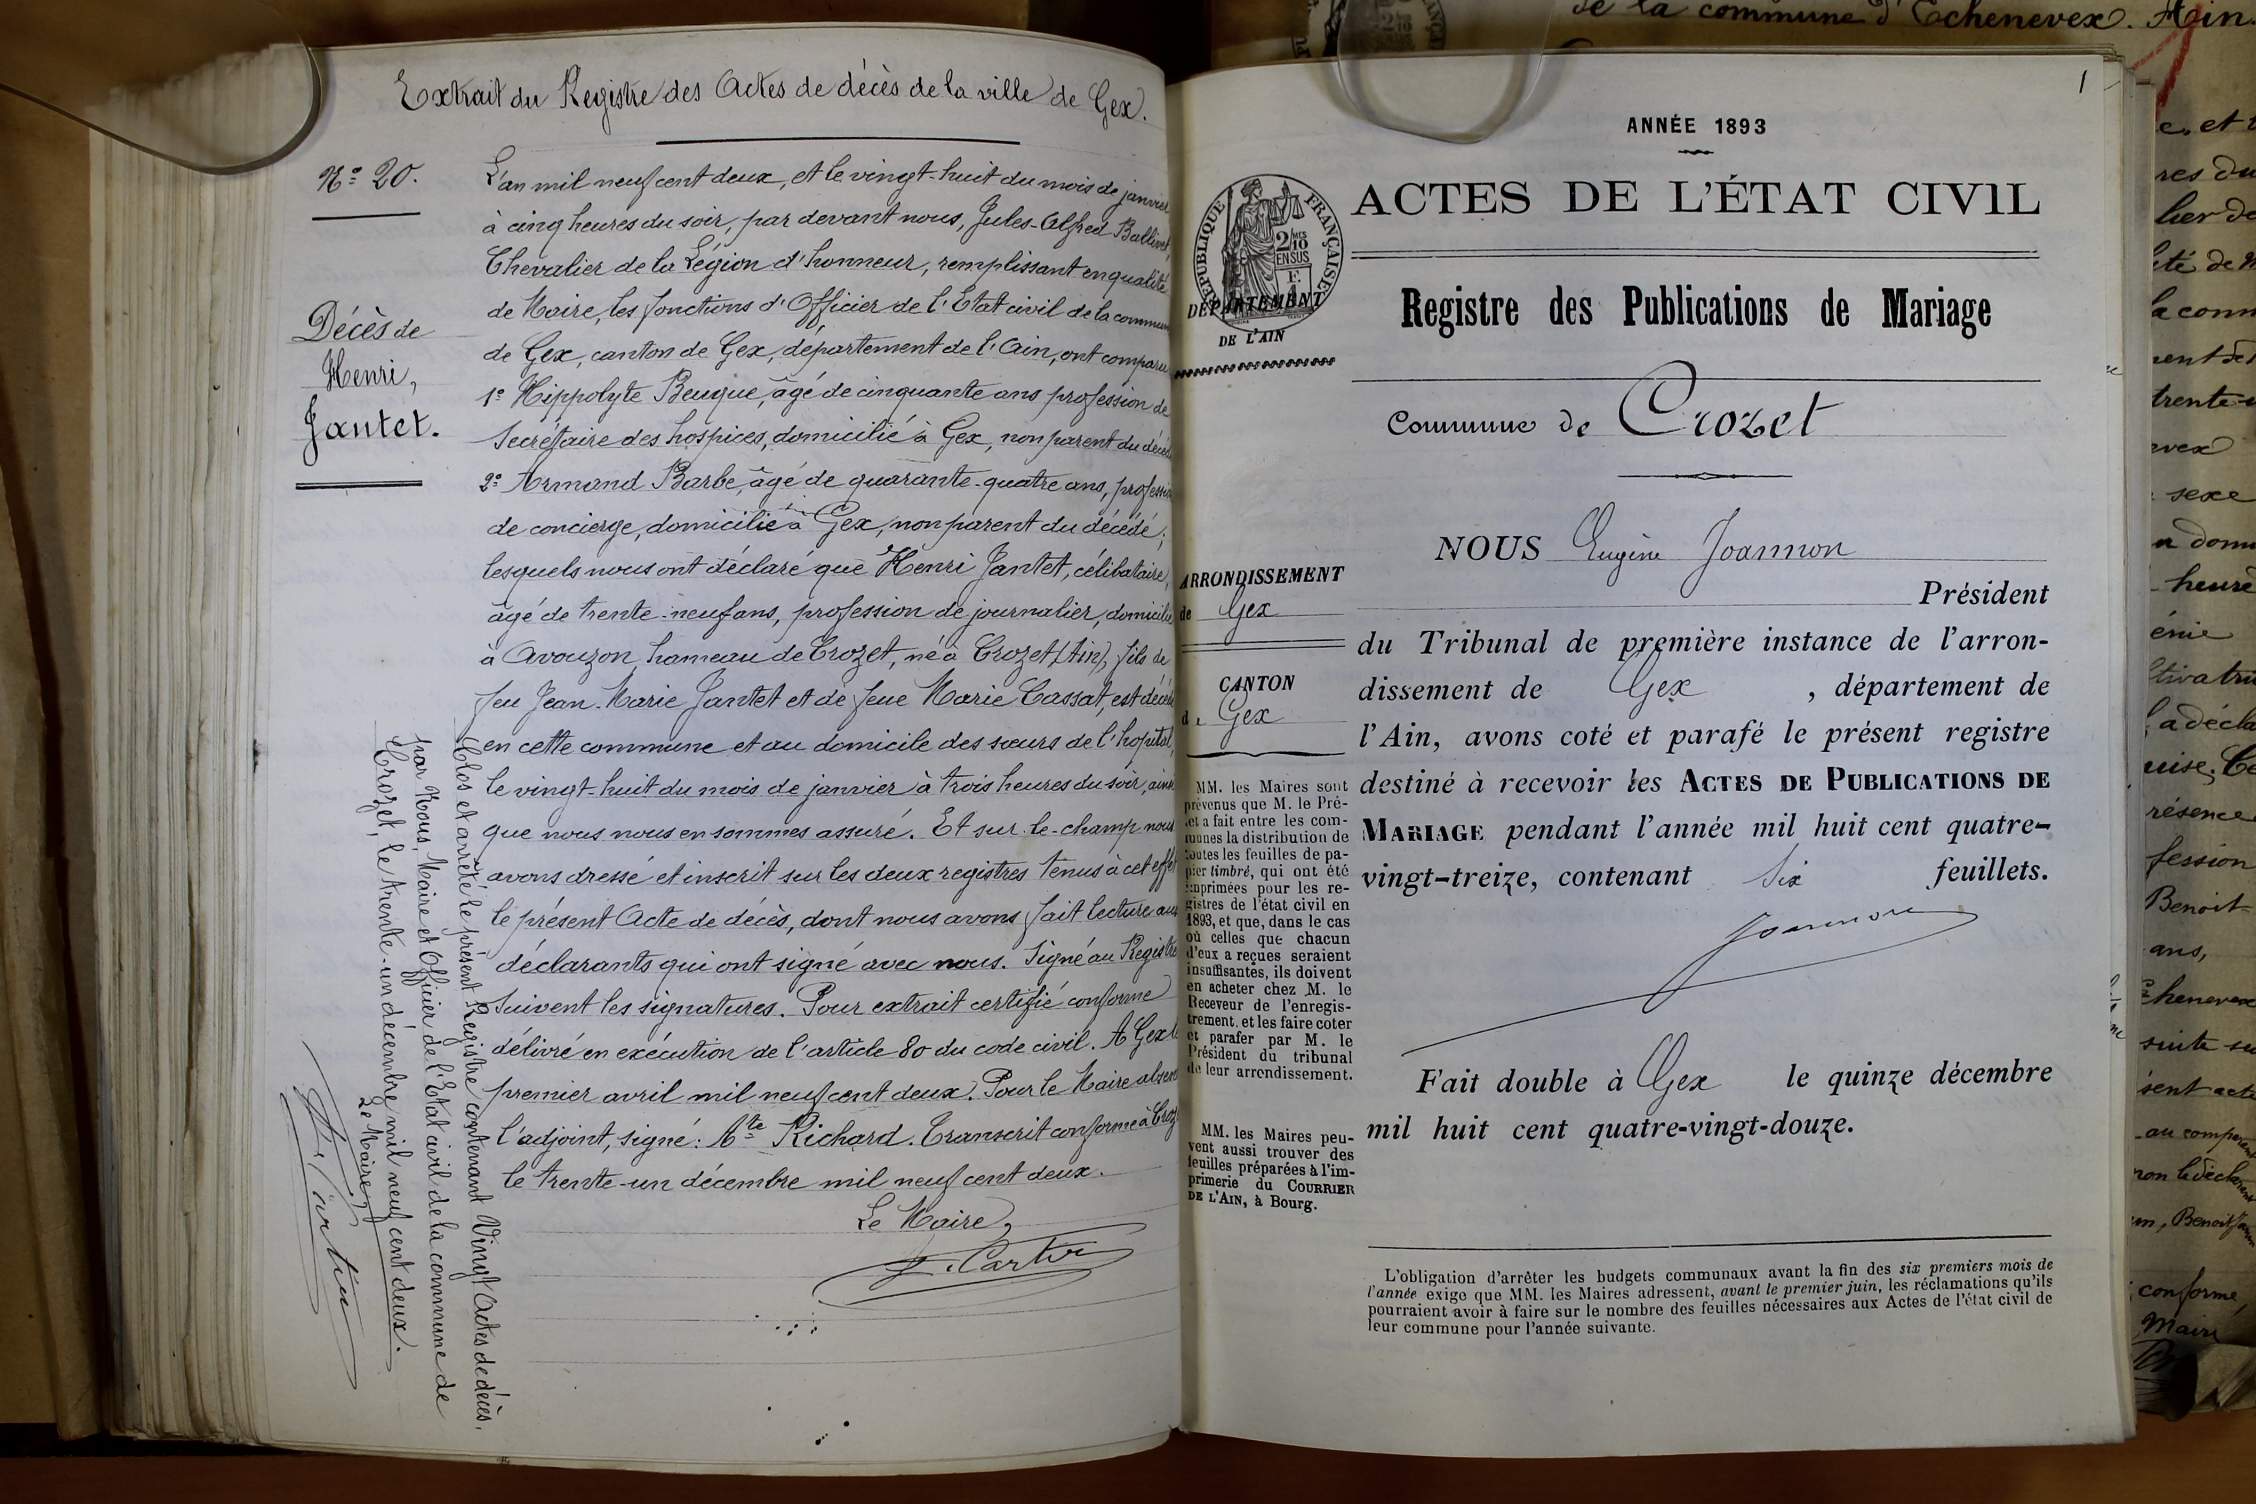 Extrait du Registre des Actes de décès de la ville de Gex.
N° 20.
Décès de
Henri,
Jantet.
L'an mil neuf cent deux, et le vingt-huit du mois de janvier
à cinq heures du soir, par devant nous, Jules-Alfred Ballivet,
Chevalier de la Légion d'honneur, remplissant en qualité
de Maire, les fonctions d'Officier de l'Etat civil de la commune
de Gex, canton de Gex, département de l'Ain, ont comparu
1° Hippolyte Beuque, âgé de cinquante ans profession de
Secrétaire des hospices, domicilié à Gex, non parent du décédé
2° Armand Barbe, âgé de quarante-quatre ans, profession
de concierge, domicilié à Gex, non parent du décédé;
lesquels nous ont déclaré que Henri Jantet, célibataire,
âgé de trente-neuf ans, profession de journalier, domicilié
à Avouzon, hameau de Crozet, né à Crozet (Ain), fils de
feu Jean-Marie Jantet et de feue Marie Cassat, est décédé
en cette commune et au domicile des sœurs de l'hopital,
le vingt-huit du mois de janvier à trois heures du soir, ainsi
que nous nous en sommes assuré. Et sur-le-champ nous
avons dressé et inscrit sur les deux registres tenus à cet effet
le présent Acte de décès, dont nous avons fait lecture aux
déclarants qui ont signé avec nous. Signé au Registre
Suivent les signatures. Pour extrait certifié conforme
délivré en exécution de l'article 80 du code civil. A Gex le
premier avril mil neuf cent deux. Pour le Maire absent
l'adjoint, signé: Richard. Transcrit conforme à Crozet
le trente-un décembre mil neuf cent deux.
Le Maire,
Clos et arrêté le présent Registre contenant Vingt Actes de décès,
par Nous, Maire et Officier de l'Etat civil de la commune de
Crozet, le trente-un décembre mil neuf cent deux.
Le Maire,
1
ANNÉE 1893
ACTES DE L'ÉTAT CIVIL
RÉPUBLIQUE FRANÇAISE
2/10 MES
EN SUS
DÉPARTEMENT
DE L'AIN
Registre des Publications de Mariage
Commune de Crozet
ARRONDISSEMENT
de Gex
CANTON
de Gex
MM. les Maires sont
prévenus que M. le Pré-
fet a fait entre les com-
munes la distribution de
toutes les feuilles de pa-
pier timbré, qui ont été
imprimées pour les re-
gistres de l'état civil en
1893, et que, dans le cas
où celles que chacun
d'eux a reçues seraient
insuffisantes, ils doivent
en acheter chez M. le
Receveur de l'enregis-
trement et les faire coter
et parafer par M. le
Président du tribunal
de leur arrondissement.
MM. les Maires peu-
vent aussi trouver des
feuilles préparées à l'im-
primerie du COURRIER
DE L'AIN, à Bourg.
NOUS Eugène Joannon
Président
du Tribunal de première instance de l'arron-
dissement de Gex , département de
l'Ain, avons coté et parafé le présent registre
destiné à recevoir les ACTES DE PUBLICATIONS DE
MARIAGE pendant l'année mil huit cent quatre-
vingt-treize, contenant six feuillets.
Joannon
Fait double à Gex le quinze décembre
mil huit cent quatre-vingt-douze.
L'obligation d'arrêter les budgets communaux avant la fin des six premiers mois de
l'année exige que MM. les Maires adressent, avant le premier juin, les réclamations qu'ils
pourraient avoir à faire sur le nombre des feuilles nécessaires aux Actes de l'état civil de
leur commune pour l'année suivante.
de la commune d'Echenevex. Ain.
sexe
heure
résence
fession
Benoit
ans,
Echenevex
conforme,